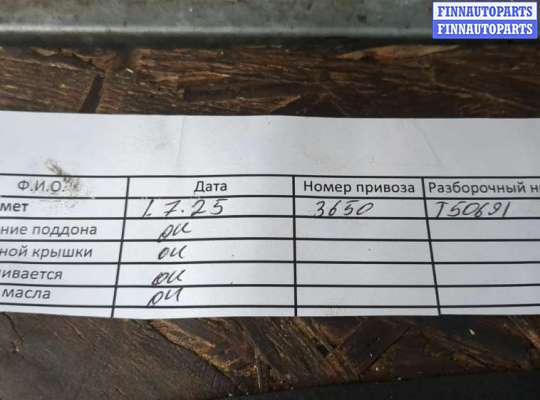 FINNAUTOPARTS
FINNAUTOPARTS
Ф.И.О. Дата Номер привоза Разборочный н
мет 1.7.25 3650 T50691
ние поддона ок
ной крышки ок
ивается ок
масла ок